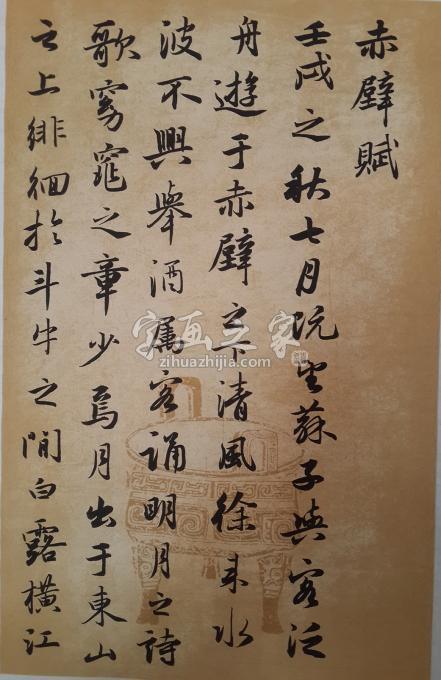 赤壁賦
壬戌之秋七月既望蘇子與客泛
舟遊于赤壁之下清風徐来水
波不興舉酒属客誦明月之詩
歌窈窕之章少焉月出于東山
之上徘徊於斗牛之間白露橫江
字画之家
zihuazhijia.com